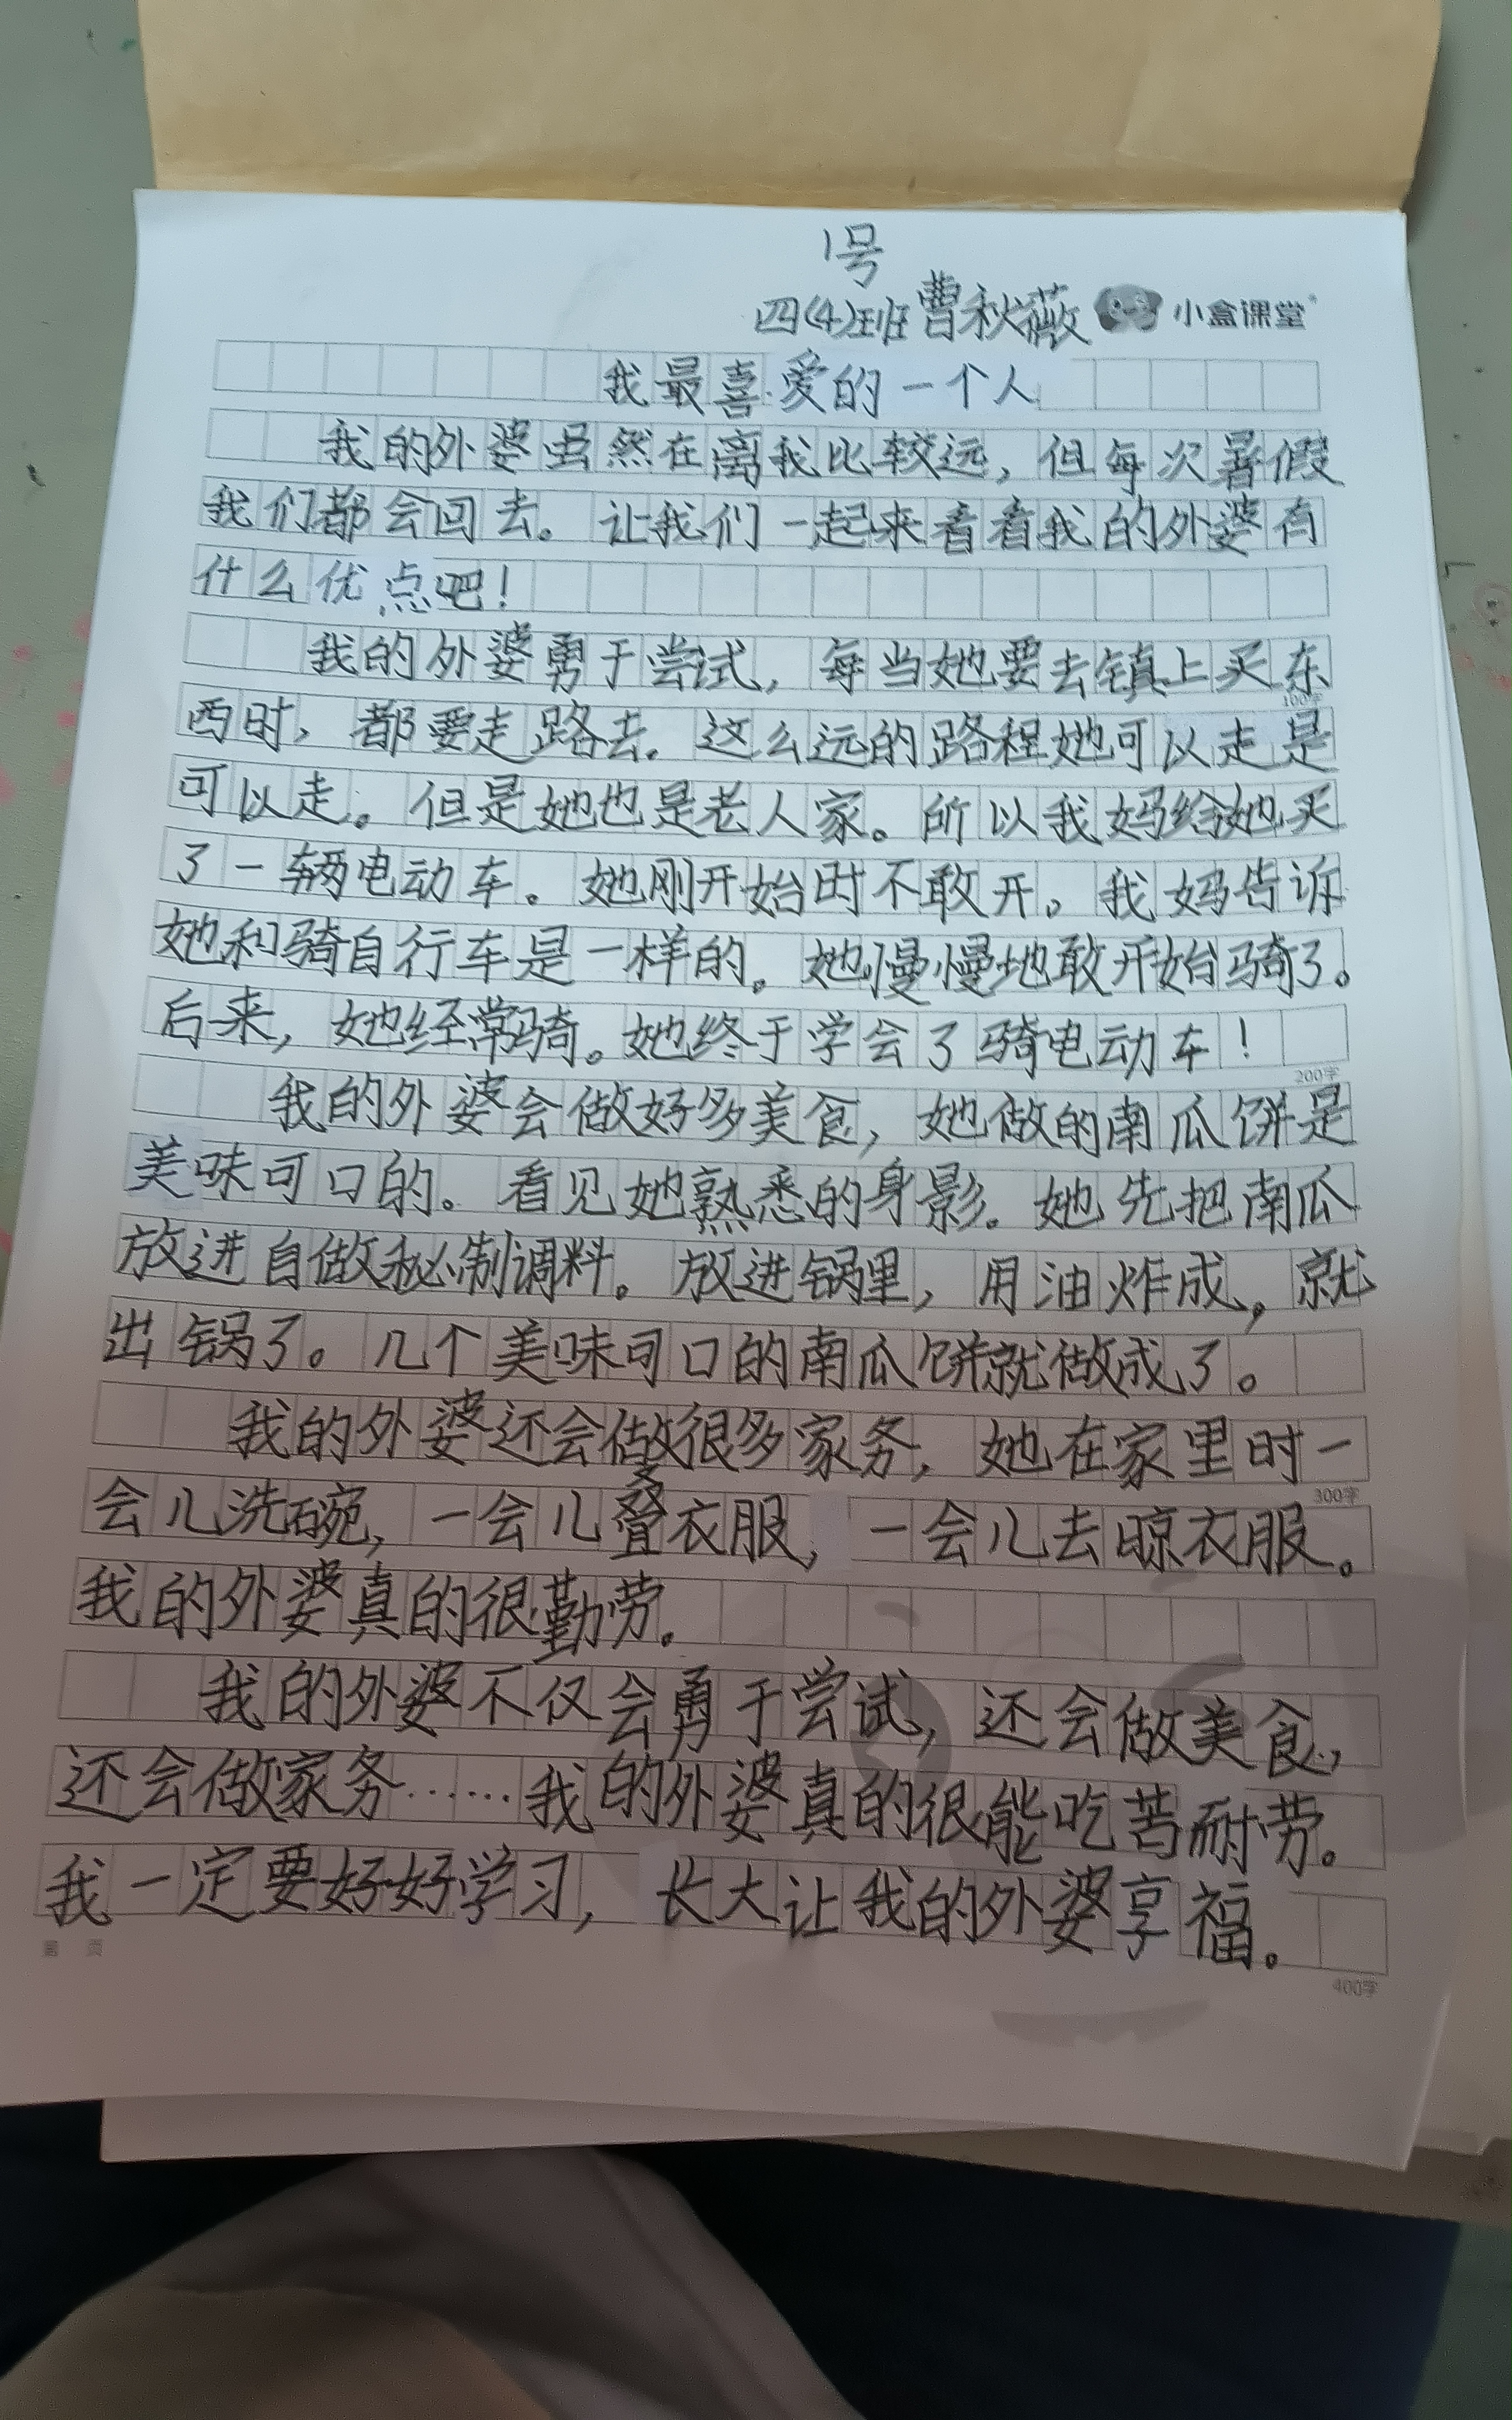 1号
四(4)班曹秋薇 小盒课堂
我最喜爱的一个人
我的外婆虽然在离我比较远，但每次暑假
我们都会回去。让我们一起来看看我的外婆有
什么优点吧！
我的外婆勇于尝试，每当她要去镇上买东
100字
西时，都要走路去。这么远的路程她可以走是
可以走。但是她也是老人家。所以我妈给她买
了一辆电动车。她刚开始时不敢开。我妈告诉
她和骑自行车是一样的。她慢慢地敢开始骑了。
后来，她经常骑。她终于学会了骑电动车！
200字
我的外婆会做好多美食，她做的南瓜饼是
美味可口的。看见她熟悉的身影。她先把南瓜
放进自做秘制调料。放进锅里，用油炸成，就
出锅了。几个美味可口的南瓜饼就做成了。
我的外婆还会做很多家务，她在家里时一
300字
会儿洗碗，一会儿叠衣服，一会儿去晾衣服。
我的外婆真的很勤劳。
我的外婆不仅会勇于尝试，还会做美食，
还会做家务……我的外婆真的很能吃苦耐劳。
我一定要好好学习，长大让我的外婆享福。
400字